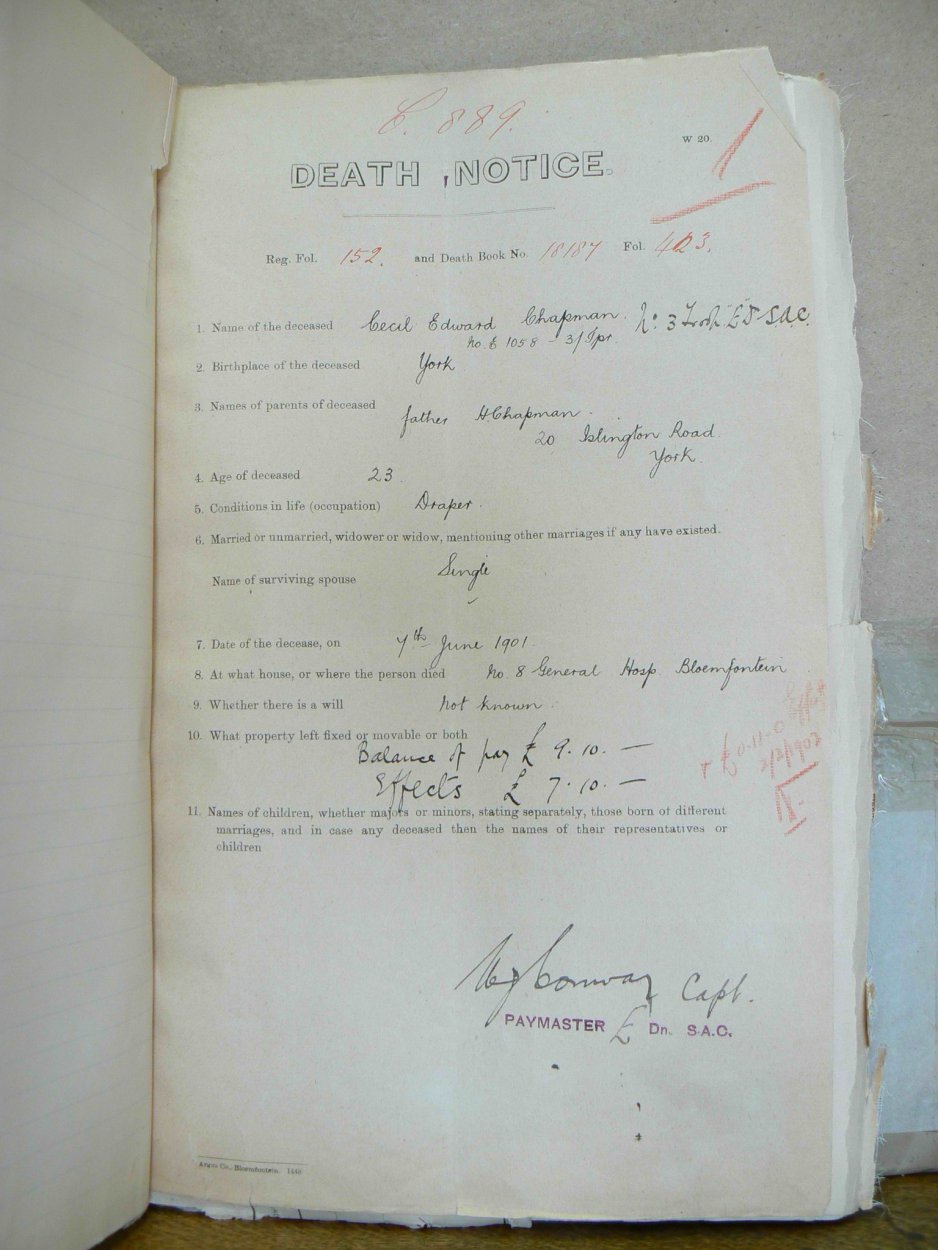 C. 889.
W 20.
1
DEATH NOTICE.
Reg. Fol. 152. and Death Book No. 18187 Fol. 423.
1. Name of the deceased Cecil Edward Chapman. No. 3 "E" S.A.C.
No. E 1058 - 3/Tpr.
2. Birthplace of the deceased York
3. Names of parents of deceased father H. Chapman.
20 Islington Road.
York.
4. Age of deceased 23.
5. Conditions in life (occupation) Draper.
6. Married or unmarried, widower or widow, mentioning other marriages if any have existed.
Single
Name of surviving spouse
7. Date of the decease, on 7th June 1901.
8. At what house, or where the person died No. 8 General Hosp. Bloemfontein
9. Whether there is a will not known.
10. What property left fixed or movable or both
Balance of pay £ 9.10. —
Effects £ 7.10. —
11. Names of children, whether majors or minors, stating separately, those born of different
marriages, and in case any deceased then the names of their representatives or
children
Conway Capt.
PAYMASTER E Dn. S.A.C.
Argus Co., Bloemfontein. 1448